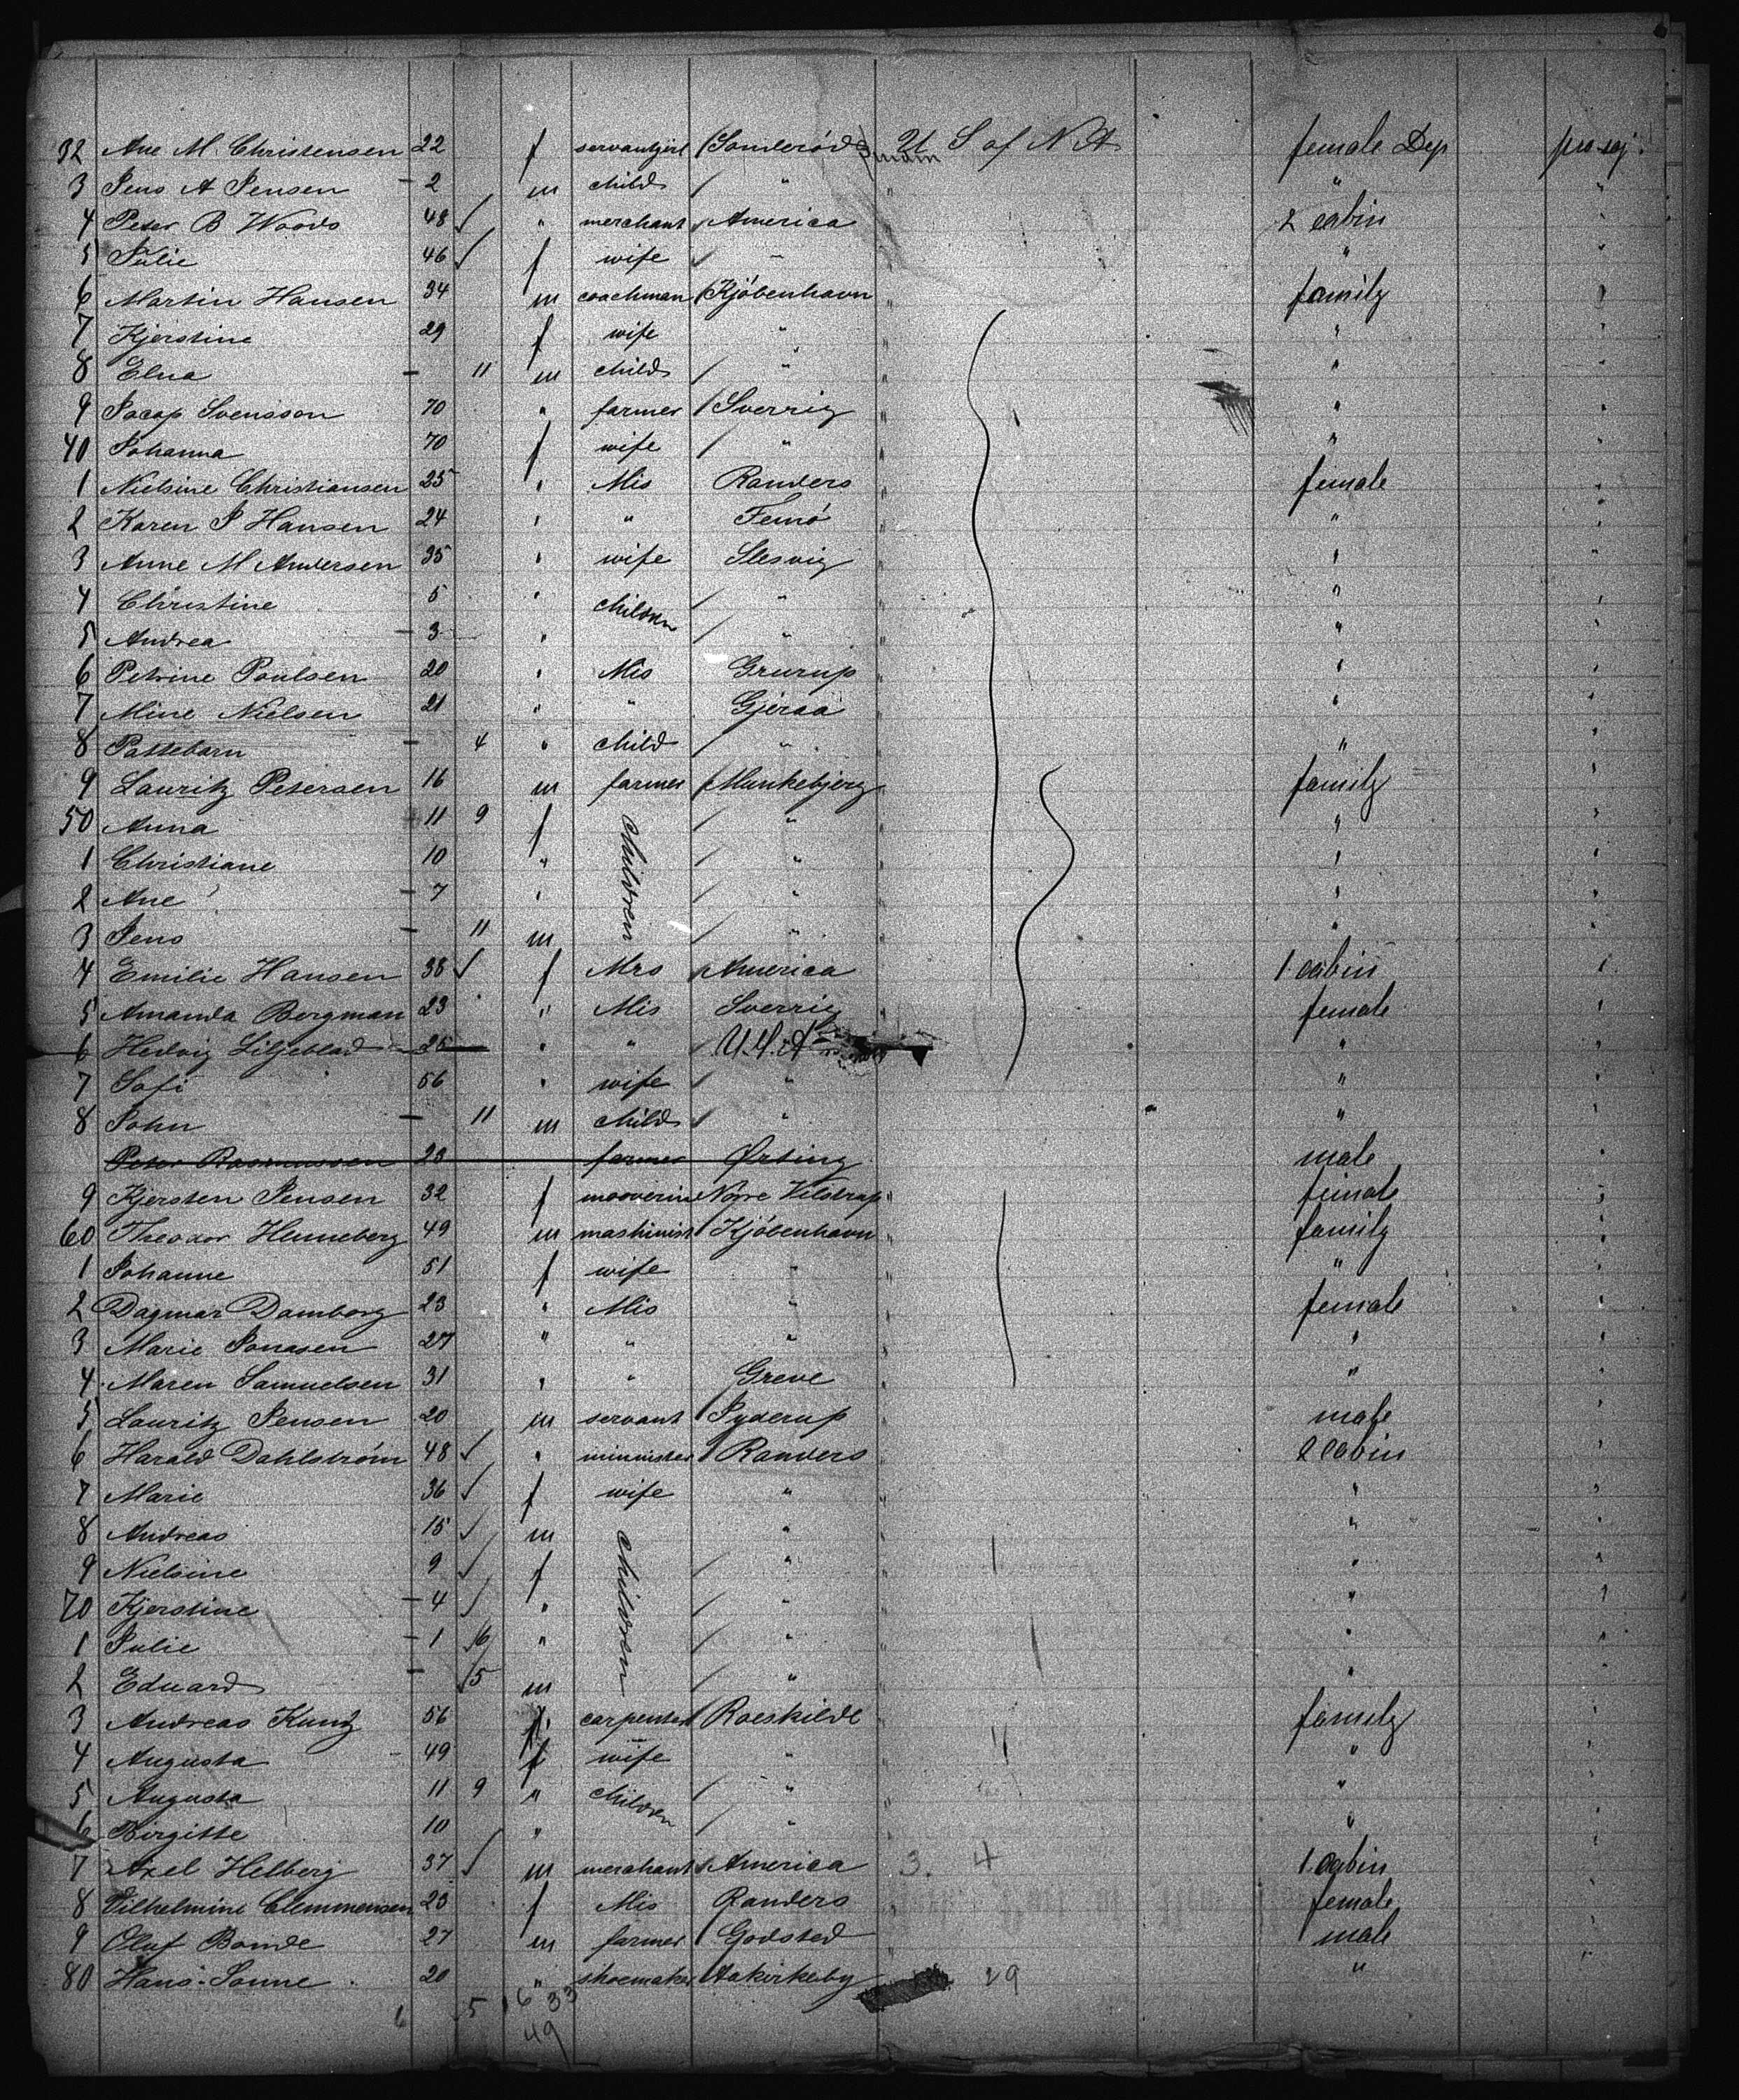 32 Ane M. Christensen 22 f servantgirl Sonderöd U S of NA female Dep pro sej.
3 Jens A Jensen - 2 m child " " " "
4 Peter B Woods 48 ✓ " merchant America " 2 cabin "
5 Julie 46 ✓ f wife " " " "
6 Martin Hansen 34 m coachman Kjöbenhavn " family "
7 Kjerstine 29 f wife " " " "
8 Elna - 11 m child " " " "
9 Jacop Svensson 70 " farmer Sverrig " " "
40 Johanna 70 f wife " " " "
1 Nielsine Christiansen 25 " Mis Randers " female "
2 Karen J Hansen 24 " " Femö " " "
3 Anne M Andersen 35 " wife Slesvig " " "
4 Christine 5 " children " " " "
5 Andrea - 3 " " " " "
6 Petrine Poulsen 20 " Mis Grurup " " "
7 Mine Nielsen 21 " " Gjeraa " " "
8 Pattebarn - 4 " child " " " "
9 Lauritz Petersen 16 m farmer Munkebjerg " family "
50 Anna 11 9 f children " " " "
1 Christiane 10 " " " " "
2 Ane - 7 " " " " "
3 Jens - 11 m " " " "
4 Emilie Hansen 38 ✓ f Mrs America " 1 cabin "
5 Amanda Bergman 23 " Mis Sverrig " female "
6 Hedvig Liljeblad 25 " " U.S.A " "
7 Sofi 56 " wife " " " "
8 John - 11 m child " " " "
Peter Rasmussen 23 farmer Ørting male "
9 Kjersten Jensen 32 f Nörre Vilstrup " female "
60 Theodor Henneberg 49 m mashinist Kjöbenhavn " family "
1 Johanne 51 f wife " " " "
2 Dagmar Damborg 23 " Mis " " female "
3 Marie Jonasen 27 " " " " " "
4 Maren Samuelsen 31 " " Greve " " "
5 Lauritz Jensen 20 m servant Jyderup " male "
6 Harald Dahlström 48 ✓ " minnister Randers " 2 cabin "
7 Marie 36 ✓ f wife " " " "
8 Andreas 15 ✓ m children " " " "
9 Nielsine 9 ✓ f " " " "
70 Kjerstine - 4 ✓ " " " " "
1 Julie - 1 6 " " " " "
2 Eduard - 5 m " " " "
3 Andreas Kunz 56 carpenter Roeskilde " family "
4 Augusta 49 f wife " " " "
5 Augusta 11 9 " children " " " "
6 Birgitte 10 " " " " "
7 Axel Helberg 37 ✓ m merchant America 3. 4 1 cabin "
8 Vilhelmine Clemmensen 23 f Mis Randers " female "
9 Oluf Bonde 27 m farmer Godsted " male "
80 Hans Sonne 20 " shoemaker Aakirkeby 29 " "
6 5 16 33
49